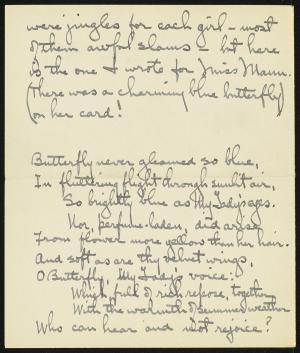 were jingles for each girl - most
of them awful slams - but here
is the one I wrote for Miss Mann.
(There was a charming blue butterfly)
(on her card!
Butterfly never gleamed so blue,
In fluttering flight through sunlit air,
So brightly blue as My Lady's eyes.
Nor, perfume-laden, did arise
From flower more yellow than her hair.
And soft as are thy velvet wings,
O Butterfly, My Lady's voice:
Which, full of rich repose, together
With the warmth of summer weather
Who can hear and not rejoice?